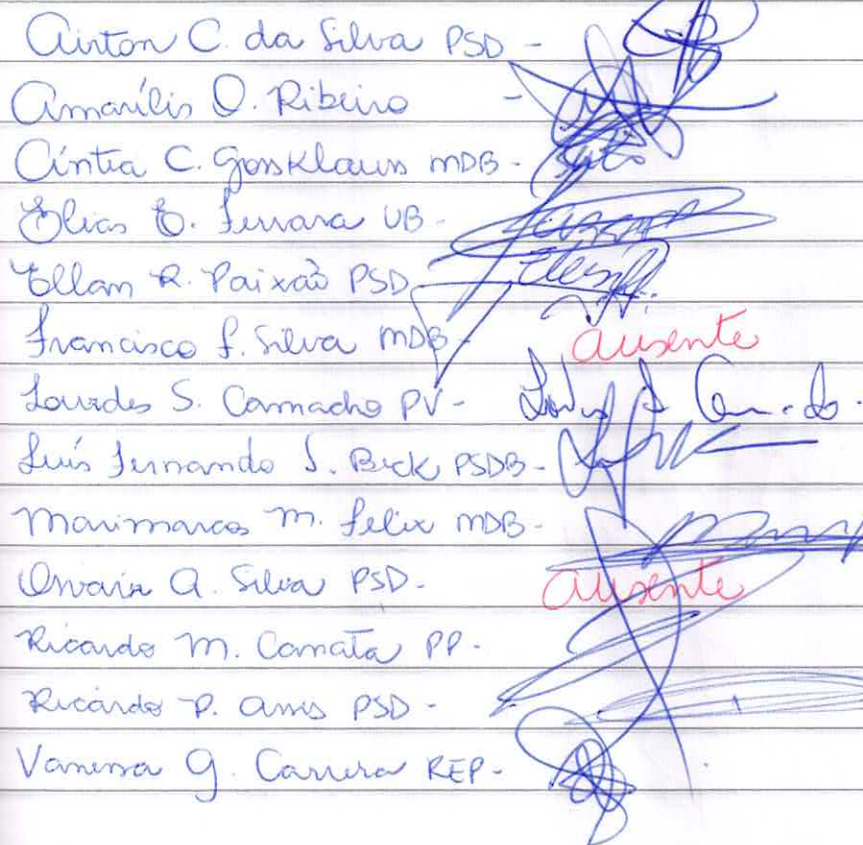 Airton C. da Silva PSD -
Amarílis O. Ribeiro -
Cíntia C. Gossklauss MDB -
Elias E. Ferrara UB -
Ellam R. Paixão PSD
Francisco f. Silva MDB - ausente
Lourdes S. Camacho PV -
Luís Fernando S. Beck PSDB -
Marimarcos M. Felix MDB -
Osvair A. Silva PSD - ausente
Ricardo M. Camata PP -
Ricardo P. Assis PSD -
Vanessa G. Carrera REP -